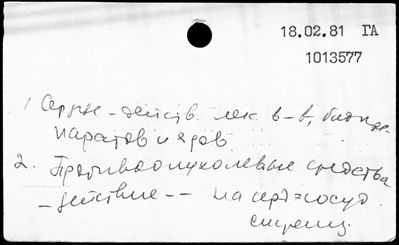 18.02.81 ГА
1013577
1 Сердце - действ. лек. в-в,
паратов и ядов.
2. Противоопухолевые средства
- действие -- на серд=сосуд.
систему.